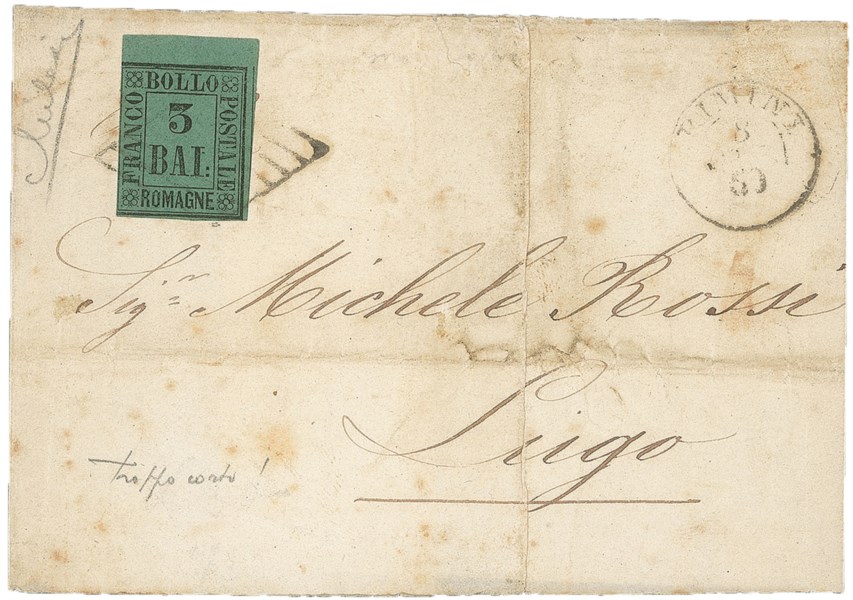 FRANCO BOLLO POSTALE
3
BAI:
ROMAGNE
RIMINI
8
59
Sigr. Michele Rossi
Lugo
troppo corto!